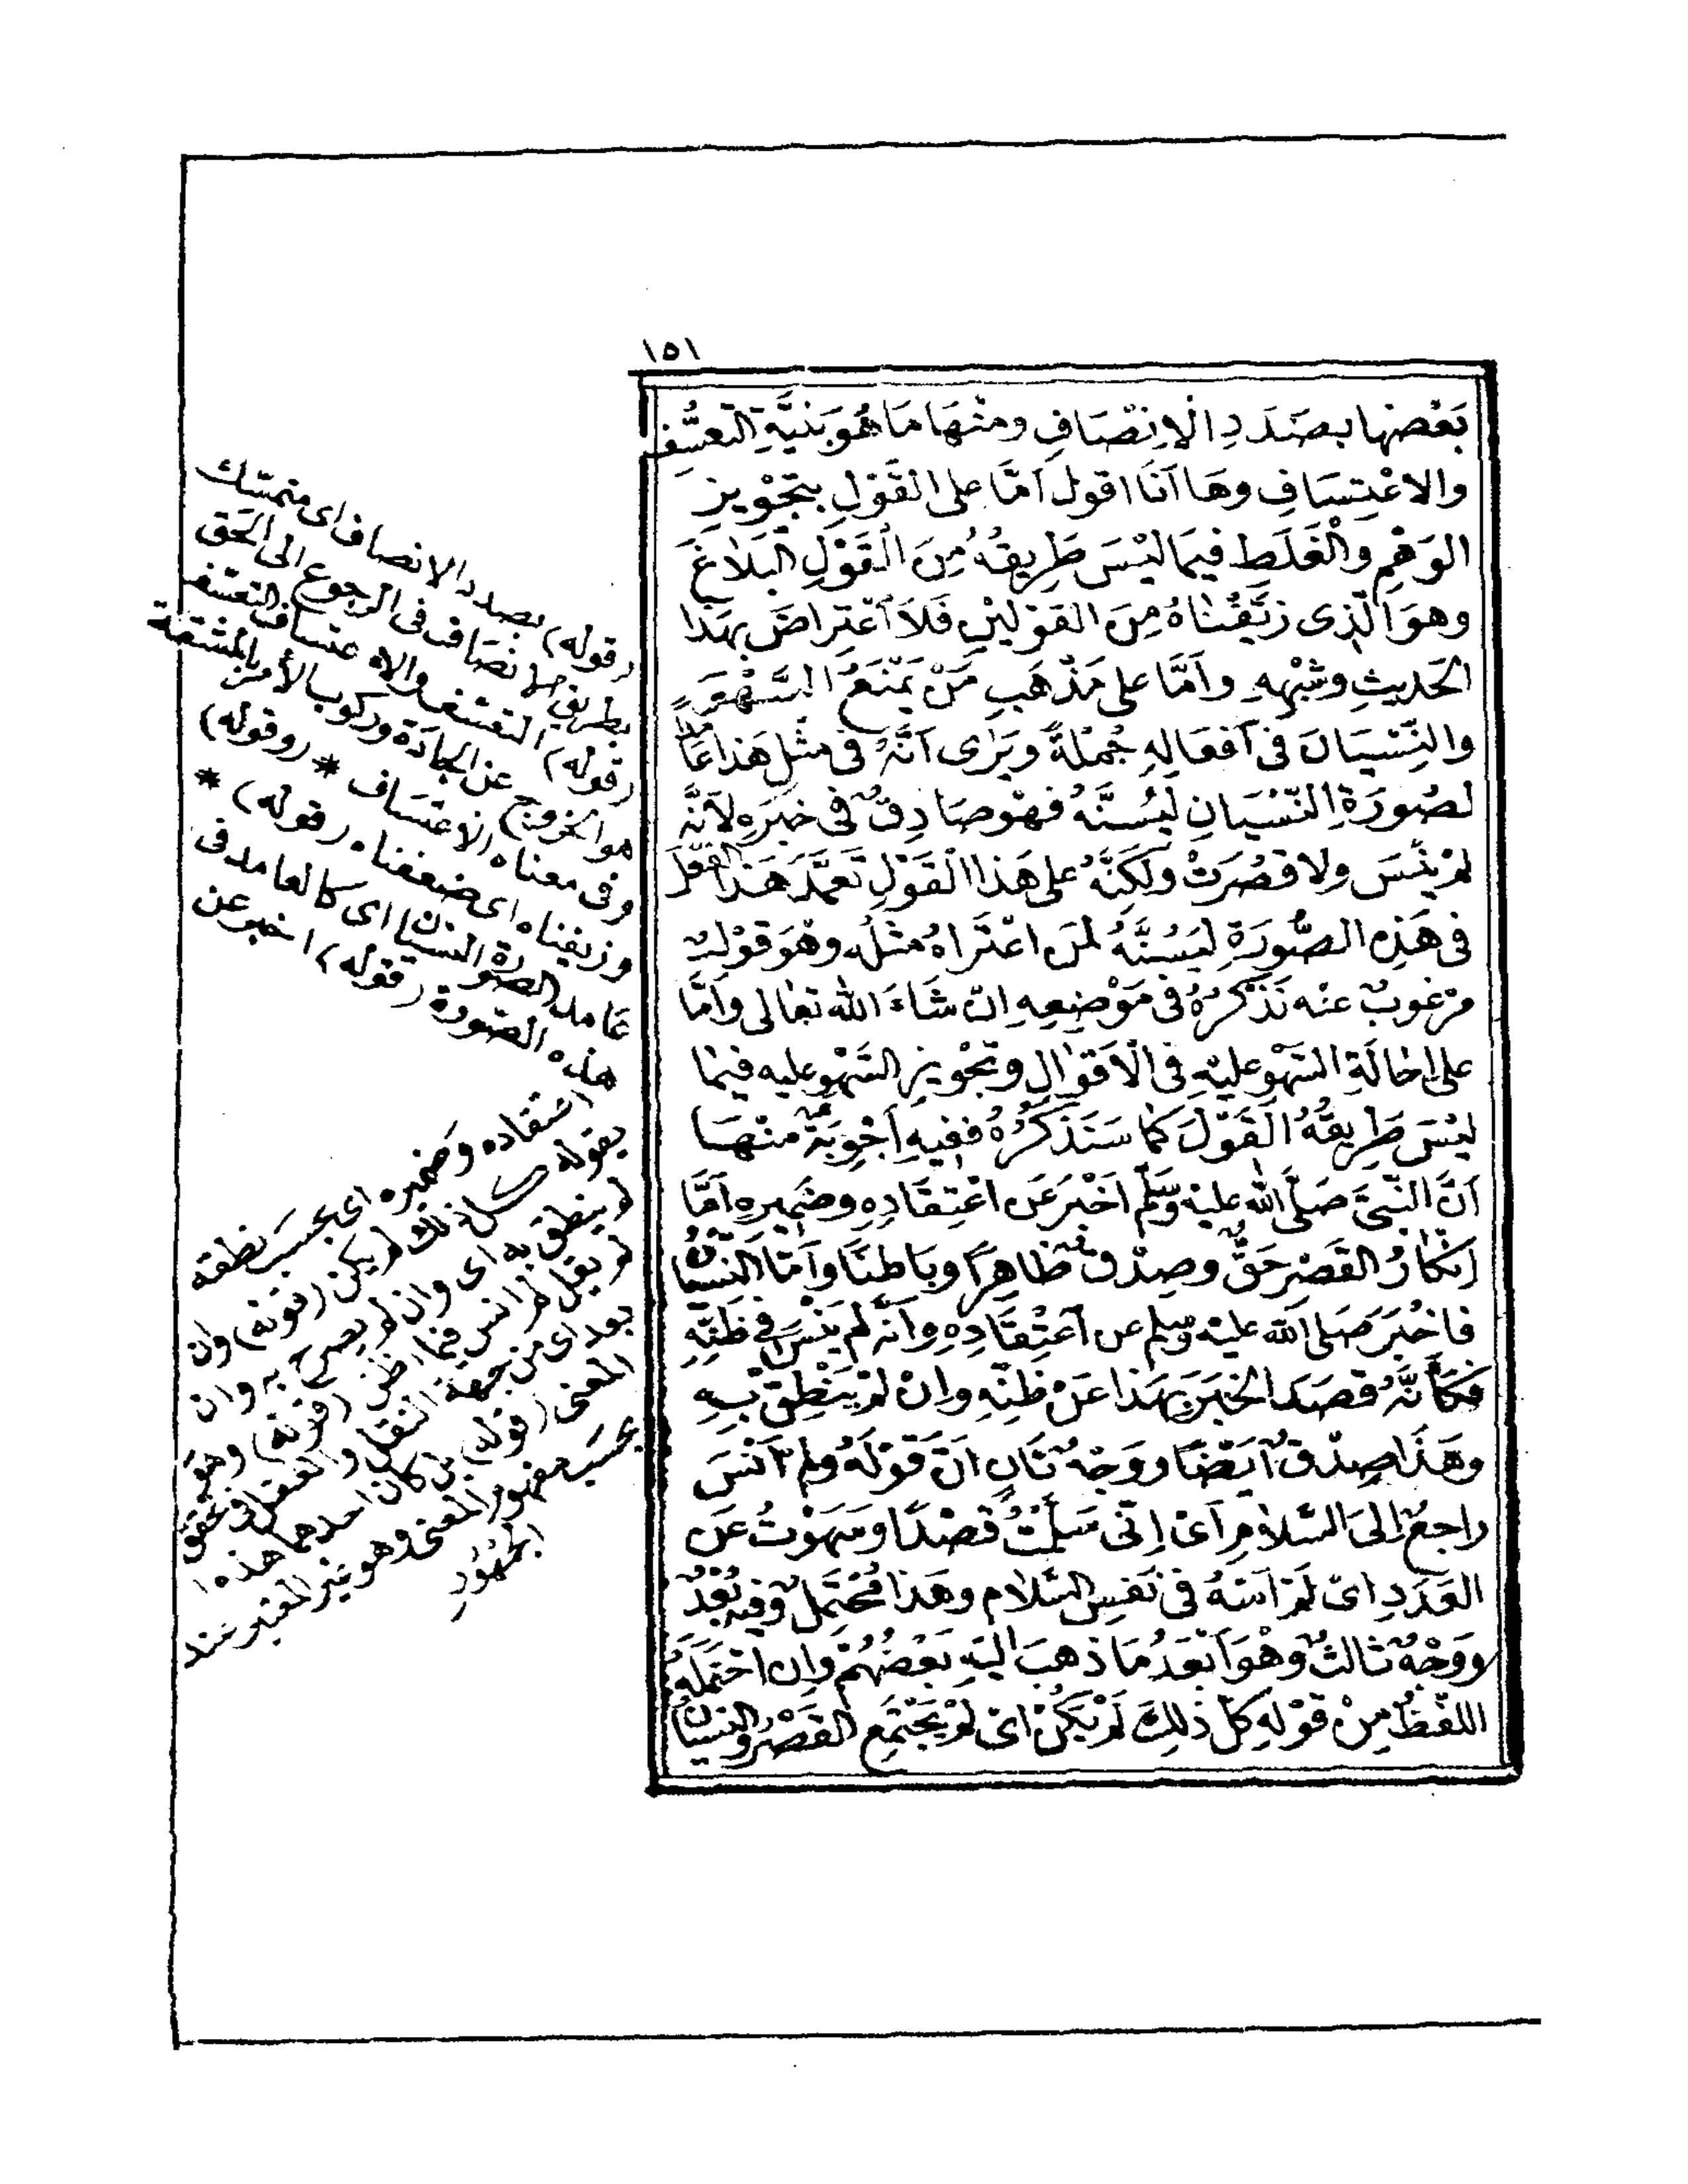 ١٥١
بَعْضُهَا بِصَدَدِ الْإِنْصَافِ وَمِنْهَا مَا هُوَ بِنِيَّةِ التَّعَسُّفِ
وَالِاعْتِسَافِ وَهَا أَنَا أَقُولُ أَمَّا عَلَى الْقَوْلِ بِتَجْوِيزِ
الْوَهْمِ وَالْغَلَطِ فِيمَا لَيْسَ طَرِيقُهُ مِنَ الْقَوْلِ الْبَلَاغَ
وَهُوَ الَّذِي زَيَّفْنَاهُ مِنَ الْقَوْلَيْنِ فَلَا اعْتِرَاضَ بِهَذَا
الْحَدِيثِ وَشِبْهِهِ وَأَمَّا عَلَى مَذْهَبِ مَنْ يَمْنَعُ السَّهْوَ
وَالنِّسْيَانَ فِي أَفْعَالِهِ جُمْلَةً وَيَرَى أَنَّهُ فِي مِثْلِ هَذَا عَامِدٌ
لِصُورَةِ النِّسْيَانِ لِيُسَنَّ فَهُوَ صَادِقٌ فِي خَبَرِهِ لِأَنَّهُ
لَمْ يَنْسَ وَلَا قُصِرَتْ وَلَكِنَّهُ عَلَى هَذَا الْقَوْلِ تَعَمَّدَ هَذَا الْفِعْلَ
فِي هَذِهِ الصُّورَةِ لِيَسُنَّهُ لِمَنِ اعْتَرَاهُ مِثْلُهُ وَهُوَ قَوْلٌ
مَرْغُوبٌ عَنْهُ نَذْكُرُهُ فِي مَوْضِعِهِ إِنْ شَاءَ اللهُ تَعَالَى وَأَمَّا
عَلَى إِحَالَةِ السَّهْوِ عَلَيْهِ فِي الْأَقْوَالِ وَتَجْوِيزِ السَّهْوِ عَلَيْهِ فِيمَا
لَيْسَ طَرِيقُهُ الْقَوْلَ كَمَا سَنَذْكُرُهُ فَفِيهِ أَجْوِبَةٌ مِنْهَا
أَنَّ النَّبِيَّ صَلَّى اللهُ عَلَيْهِ وَسَلَّمَ أَخْبَرَ عَنِ اعْتِقَادِهِ وَضَمِيرِهِ أَمَّا
إِنْكَارُ الْقَصْرِ حَقٌّ وَصِدْقٌ ظَاهِرًا وَبَاطِنًا وَأَمَّا النِّسْيَانُ
فَأَخْبَرَ صَلَّى اللهُ عَلَيْهِ وَسَلَّمَ عَنِ اعْتِقَادِهِ وَأَنَّهُ لَمْ يَنْسَ فِي ظَنِّهِ
فَكَأَنَّهُ قَصَدَ الْخَبَرَ بِهَذَا عَنْ ظَنِّهِ وَإِنْ لَمْ يَنْطِقْ بِهِ
وَهَذَا صِدْقٌ أَيْضًا وَوَجْهٌ ثَانٍ أَنَّ قَوْلَهُ وَلَمْ أَنْسَ
رَاجِعٌ إِلَى السَّلَامِ أَيْ إِنِّي سَلَّمْتُ قَصْدًا وَسَهَوْتُ عَنِ
الْعَدَدِ أَيْ لَمْ أَسْهُ فِي نَفْسِ السَّلَامِ وَهَذَا مُحْتَمَلٌ وَفِيهِ بُعْدٌ
وَوَجْهٌ ثَالِثٌ وَهُوَ أَبْعَدُ مَا ذَهَبَ إِلَيْهِ بَعْضُهُمْ وَإِنِ احْتَمَلَهُ
اللَّفْظُ مِنْ قَوْلِهِ كُلُّ ذَلِكَ لَمْ يَكُنْ أَيْ لَمْ يَجْتَمِعِ الْقَصْرُ وَالنِّسْيَانُ
(قوله) بصدد الانصاف اى متمسّك
بطريق الانصاف فى الرجوع الى الحَق
(قوله) التعسّف والاعتساف التعسّف
هو الخروج عن الجادّة وركوب الأمر بالمشقة
وفى معناه الاعتسَاف * (وقوله)
وزيفناه اى ضعفناه (قوله) *
عامد الصورة النسيان اى كالعامد فى
هذه الصّورة (قوله) اخبر عن
اعتقاده وضميره اى بحسب نطقه
بقوله كل ذلك لم يكن (قوله) وان
لم ينطق به اى وان لم يصرح به وان
لم يقل لم انس فيما اظن (قوله) وهو
بعد اى من جهة النقل والعقل فى تحقق
المعنى (قوله) بل كان احدهما هذا
بحسَب مفهوم المعنى وهو غير المعتبر عند
الجمهُور